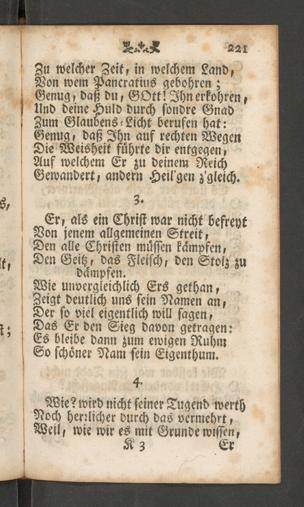 221
Zu welcher Zeit, in welchem Land,
Von wem Pancratius gebohren;
Genug, daß du, GOtt! Ihn erkohren,
Und deine Huld durch sondre Gnad
Zum Glaubens-Licht berufen hat:
Genug, daß Ihn auf rechten Wegen
Die Weisheit führte dir entgegen,
Auf welchem Er zu deinem Reich
Gewandert, andern Heil'gen z'gleich.
3.
Er, als ein Christ war nicht befreyt
Von jenem allgemeinen Streit,
Den alle Christen müssen kämpfen,
Den Geitz, das Fleisch, den Stolz zu
dämpfen.
Wie unvergleichlich Ers gethan,
Zeigt deutlich uns sein Namen an,
Der so viel eigentlich will sagen,
Das Er den Sieg davon getragen:
Es bleibe dann zum ewigen Ruhm
So schöner Nam sein Eigenthum.
4.
Wie? wird nicht seiner Tugend werth
Noch herrlicher durch das vermehrt,
Weil, wie wir es mit Grunde wissen,
K 3 Er